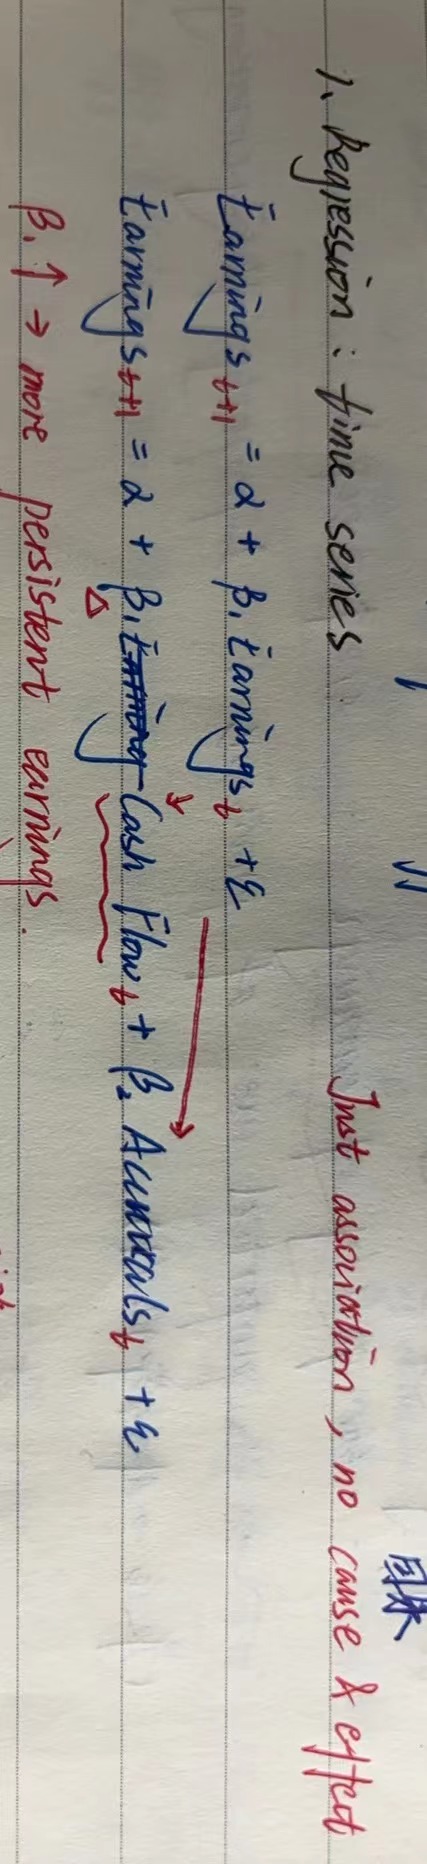 1、Regression : time series
Just association, no cause & effect
Earnings t+1 = α + β₁ Earnings t + ε
Earnings t+1 = α + β₁ Cash Flow t + β₂ Accruals t + ε
β₁ ↑ → more persistent earnings.